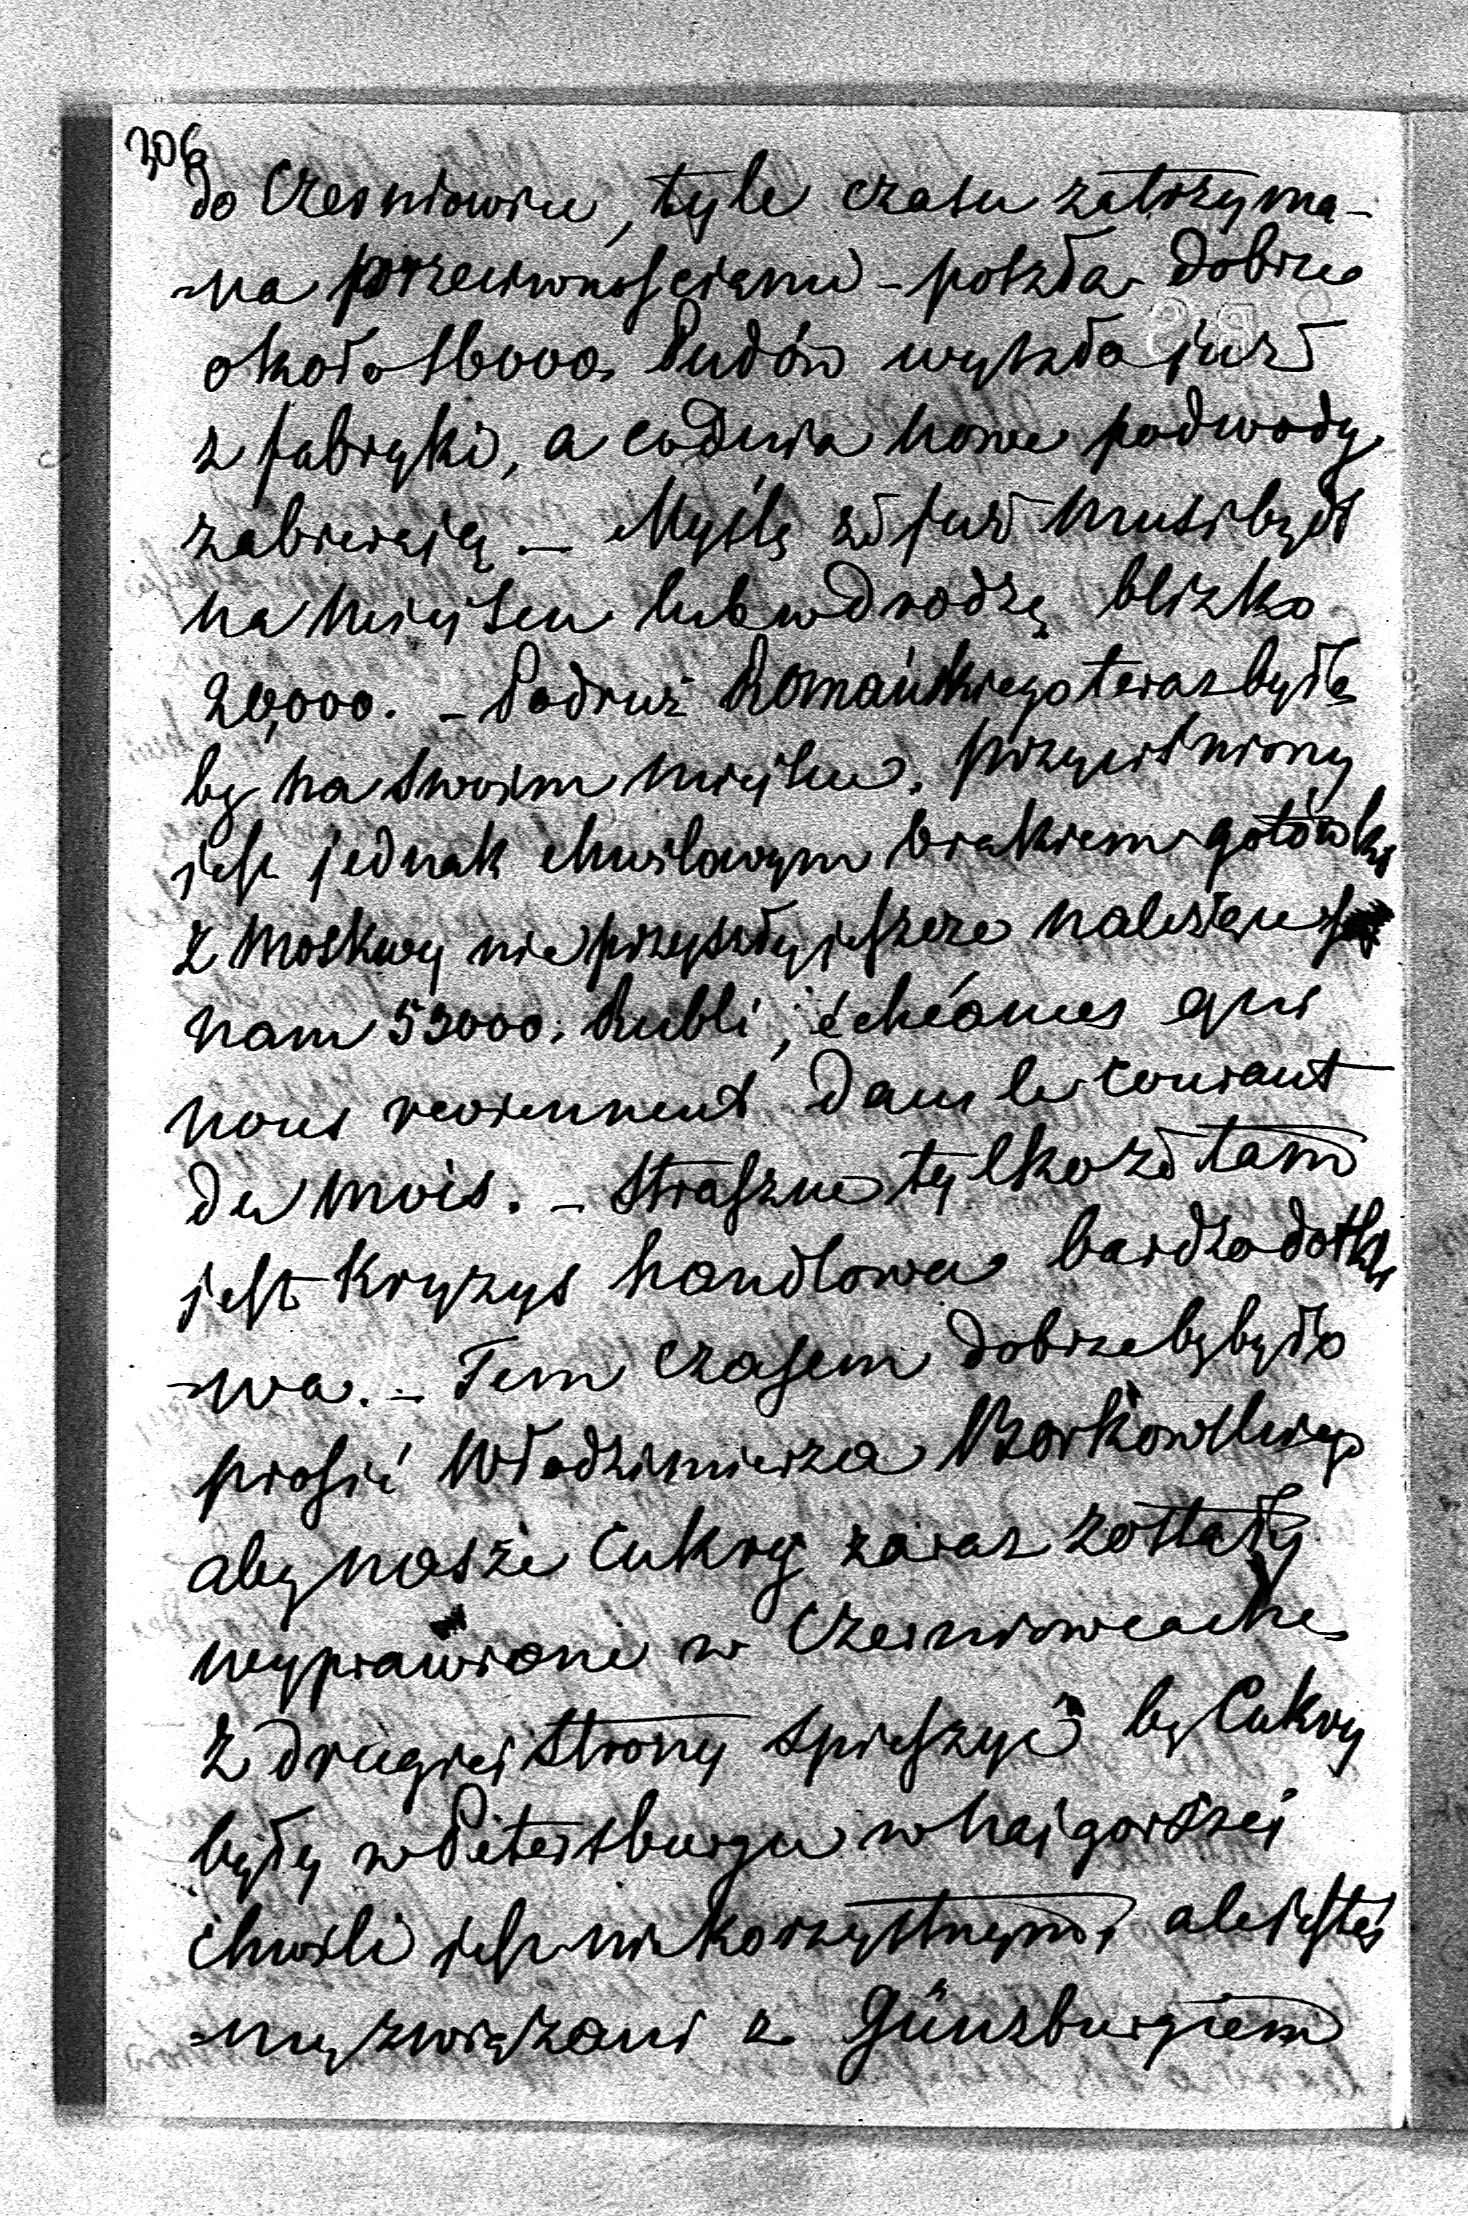 306
do Czerniowiec, tyle czasu zatrzyma-
-na przeciwnościami - poszła dobrze
około 16000 Pudów wyszło już
z fabryki, a codnia nowe podwody
zabierają - Myślę że już musi być
na miejscu lub w drodzę blizko
20,000. - Podruż Romańskiego teraz była
by na swoim miejscu. Przyciśniony
jest jednak chwilowym brakiem gotówki
z Moskwy nie przyszły jeszcze należące
nam 53000. Rubli, échéances qui
nous reviennent dans le courant
du mois. - Straszne tylko że tam
jest Kryzys handlowa bardzo dotkli
-wa. - Tem czasem dobrze by było
prosić Włodzimierza Borkowskiego
aby nasze Cukry zaraz zostały
wyprawione w Czerniowcach
z drugiej strony spieszyć by Cukry
były w Petersburgu w najgorszej
chwili jest nie korzystnym, ale jesteś
-my związani z Günzburgiem